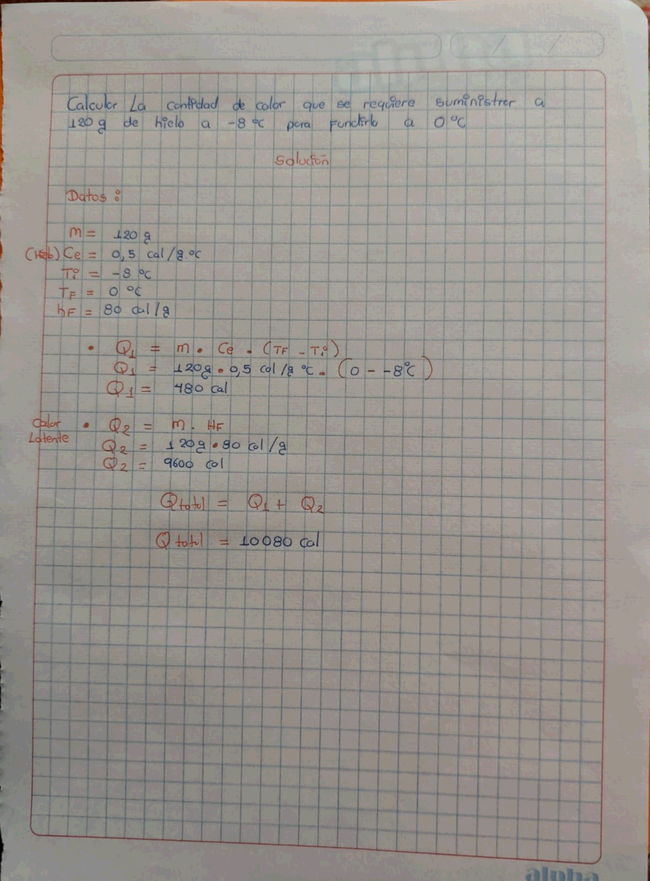 Calcular La cantidad de calor que se requiere suministrar a
120 g de hielo a -8 °C para fundirlo a 0 °C
Solución
Datos :
m = 120 g
(Hielo) Ce = 0,5 cal/g.°C
Ti = -8 °C
TF = 0 °C
hF = 80 cal/g
• Q1 = m • Ce • (TF - Ti)
Q1 = 120g • 0,5 cal/g °C • (0 - -8°C)
Q1 = 480 cal
Calor • Q2 = m . HF
Latente
Q2 = 120g • 80 cal/g
Q2 = 9600 cal
Qtotal = Q1 + Q2
Qtotal = 10080 cal
alpha